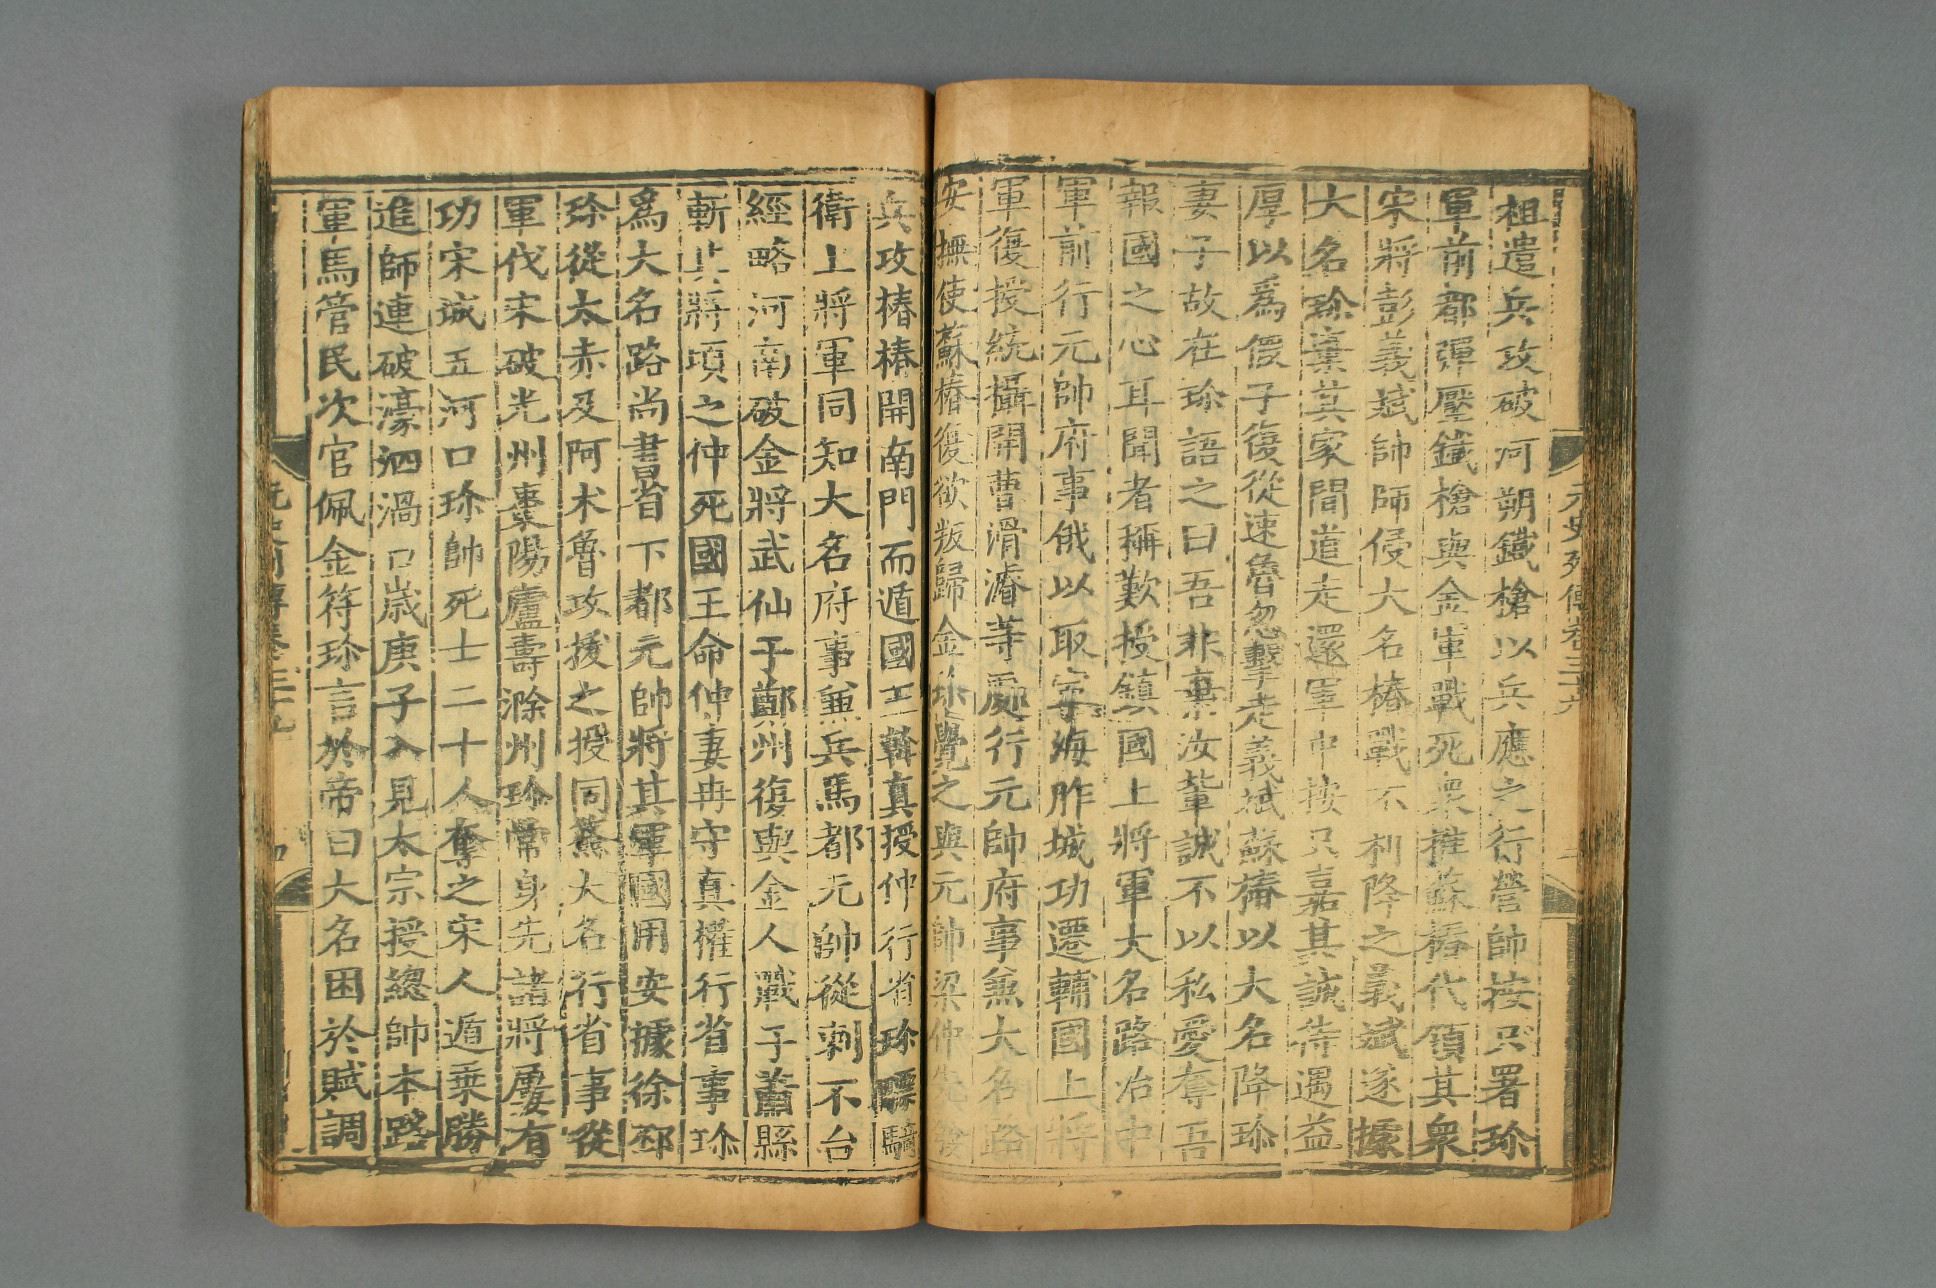 元史列傳卷三十九
祖遣兵攻破河朔鐵槍以兵應之行營師按只署珍
軍前都彈壓鐵槍與金軍戰死衆推蘇椿代領其衆
宋將彭義斌帥師侵大名椿戰不利降之義斌遂據
大名珍棄其家間道走還軍中按只嘉其誠待遇益
厚以爲假子復從速魯忽擊走義斌蘇椿以大名降珍
妻子故在珍語之曰吾非棄汝輩誠不以私愛奪吾
報國之心耳聞者稱歎授鎮國上將軍大名路治中
軍前行元帥府事俄以取宋海胙城功遷輔國上將
軍復授統攝開曹滑濬等處行元帥府事兼大名路
安撫使蘇椿復欲叛歸金珍覺之與元帥梁仲先發
兵攻椿椿開南門而遁國王斡真授仲行省珍驃騎
衛上將軍同知大名府事兼兵馬都元帥從剌不台
經略河南破金將武仙于鄭州復與金人戰于蕭縣
斬其將項之仲死國王命仲妻冉守真權行省事珍
爲大名路尚書省下都元帥將其軍國用安據徐邳
珍從太赤及阿朮魯攻拔之授同簽大名行省事從
軍伐宋破光州棗陽廬壽滁州珍常身先諸將屢有
功宋城五河口珍帥死士二十人奪之宋人遁乘勝
進師連破濠泗渦口歲庚子入見太宗授總帥本路
軍馬管民次官佩金符珍言於帝曰大名困於賦調